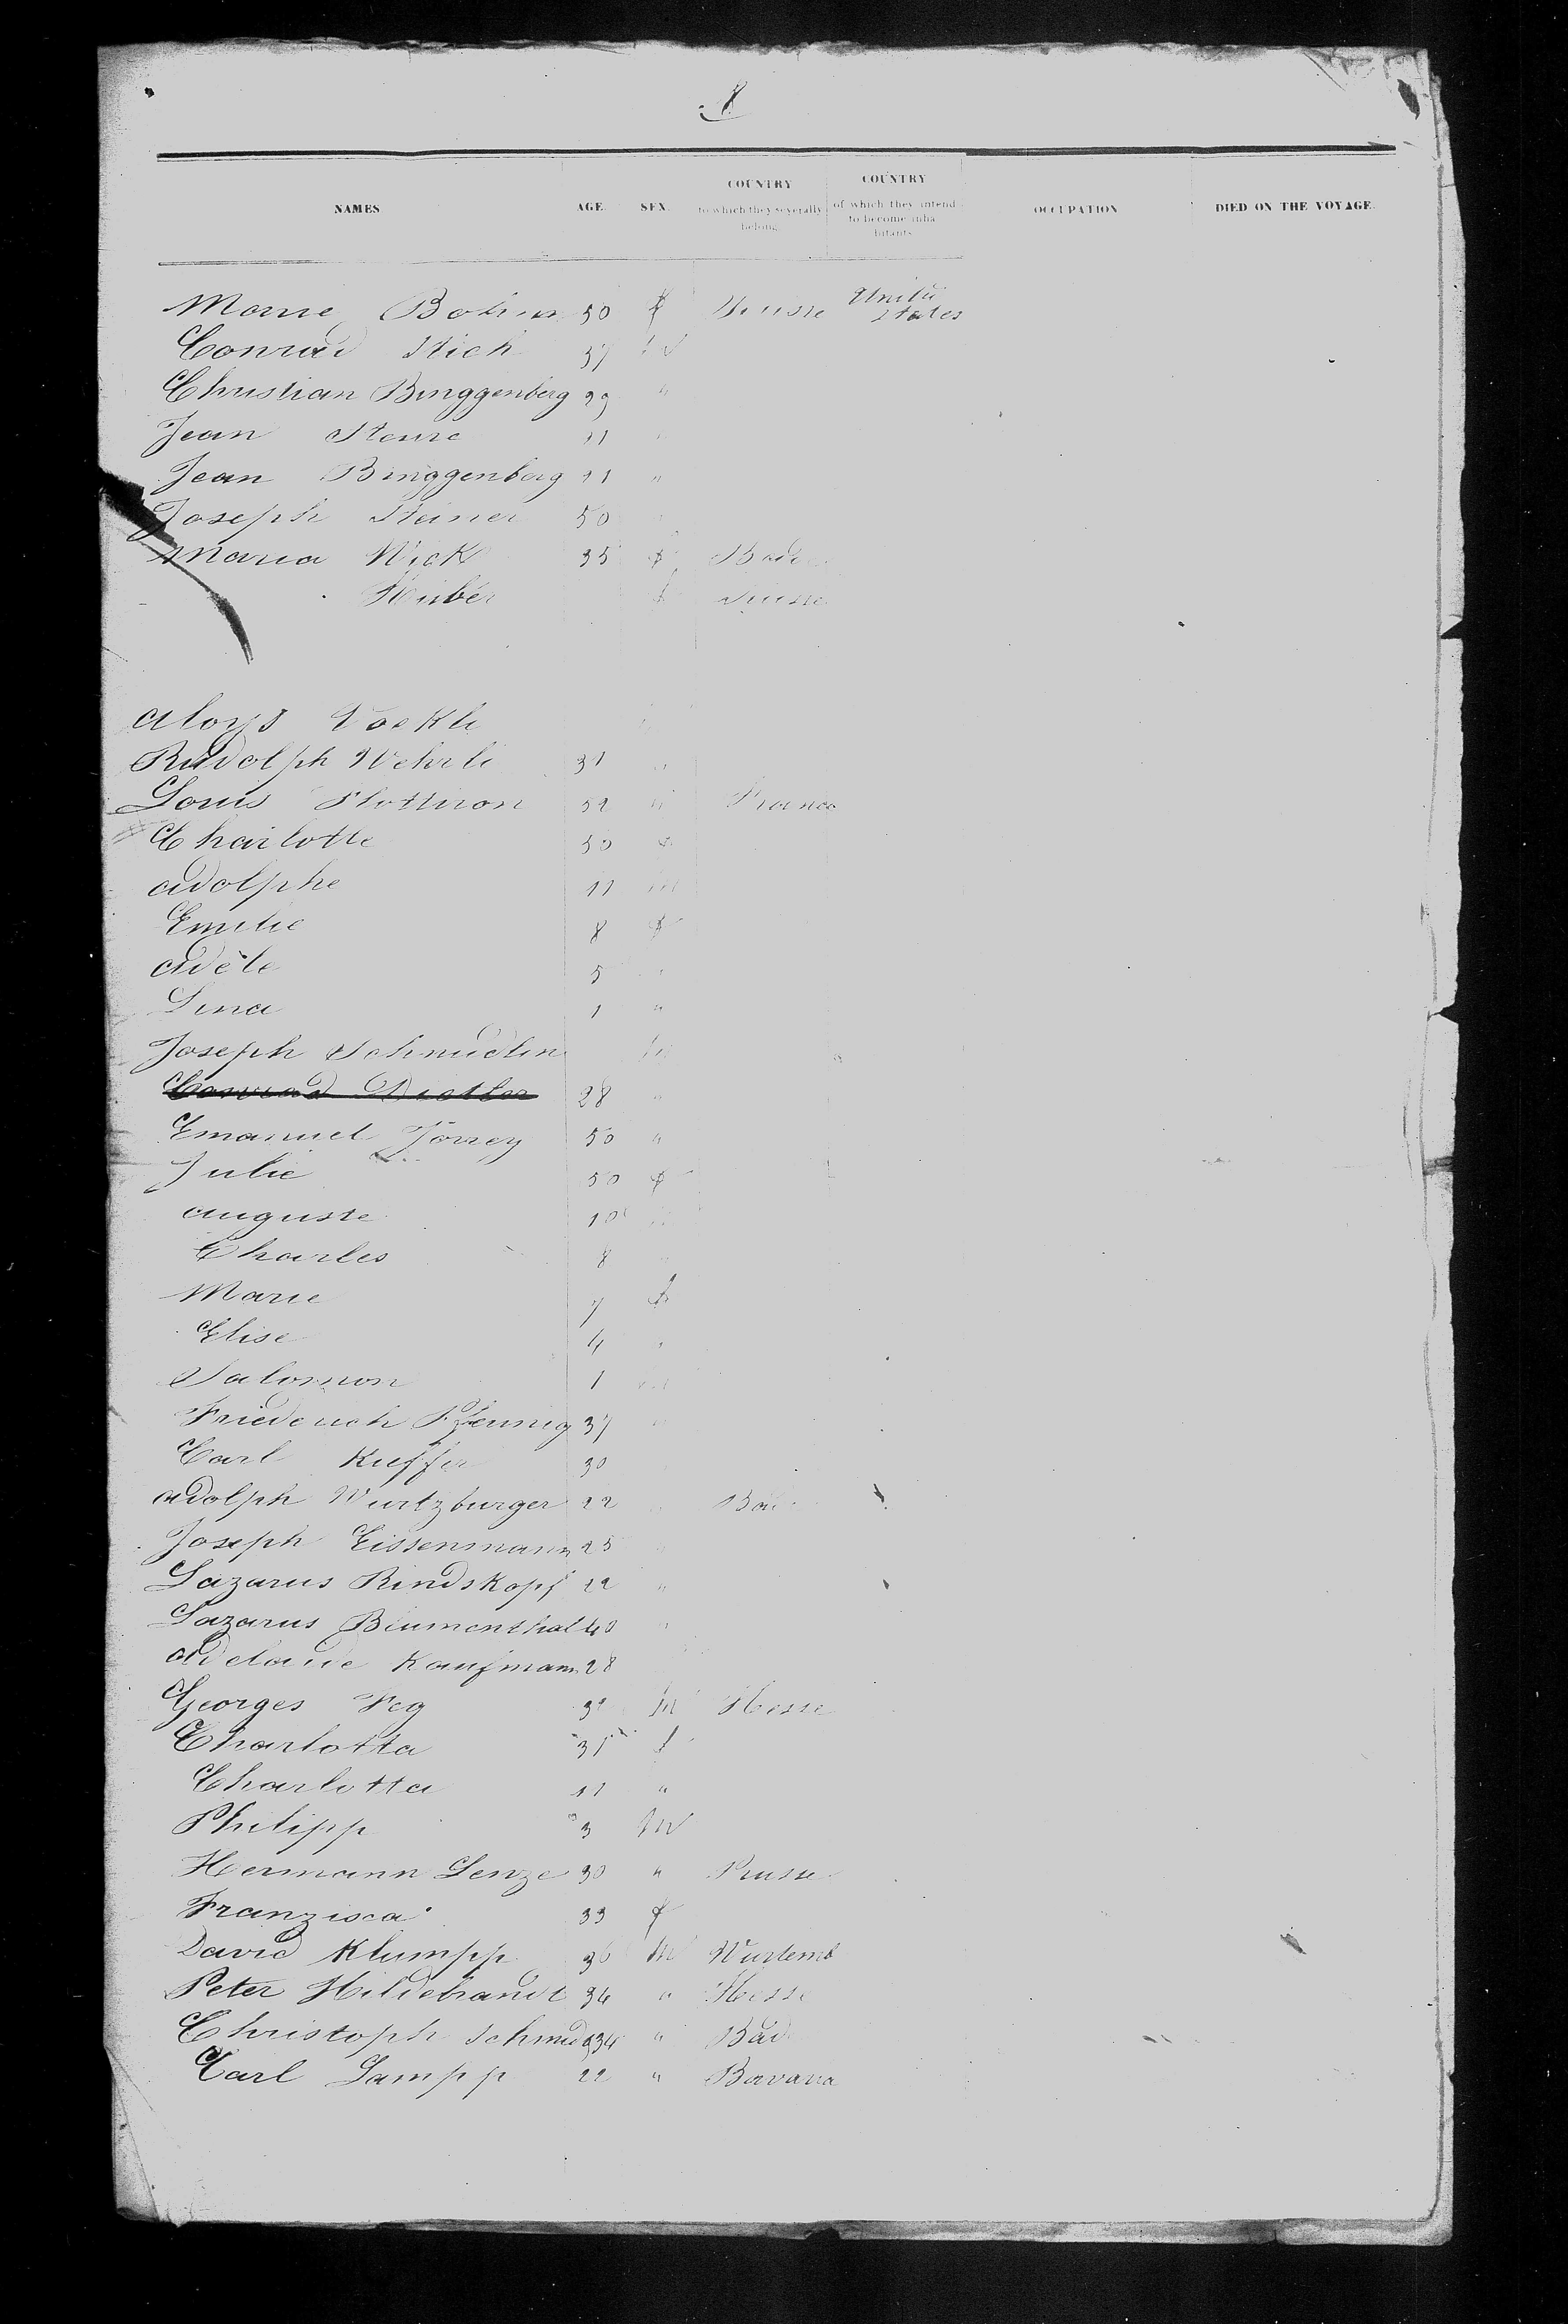 8
NAMES AGE SEX. COUNTRY to which they severally belong. COUNTRY of which they intend to become inhabitants. OCCUPATION DIED ON THE VOYAGE.
Marie 50 f Suisse United States
Conrad Stich 37 M
Christian Binggenberg 29 "
Jean
Jean Binggenberg 21 "
Joseph Steiner 50
Maria Wick 35 f Bade
Huber f Suisse
Aloys Voekli
Rudolph Wehrli 31 "
Louis Flottiron 52 " France
Charlotte 50 f
Adolphe 11 M
Emilie 8 f
Adèle 5 "
Lina 1 "
Joseph Schmidlin M
Conrad Distler 28 "
Emanuel Jorrey 50 "
Julie 50 f
Auguste 10 M
Charles 8 "
Marie 7 f
Elise 4 "
Salomon 1 M
Friederich Pfennig 37 "
Carl Kuffer 30
Adolph Wurtzburger 22 " Bad
Joseph Eissenmann 25 "
Lazarus Rindskopf 22 "
Lazarus Blumenthal 40 "
Adelaide Kaufmann 28
Georges Feg 32 M Hesse
Charlotta 31 f
Charlotta 11 "
Philipp 3 M
Hermann Lenze 30 " Prusse
Franzisca 33 f
David Klumpp 36 M Wurtemb
Peter Hildebrandt 34 " Hesse
Christoph Schmidt 34 " Bad
Carl Lampp 22 " Bavaria